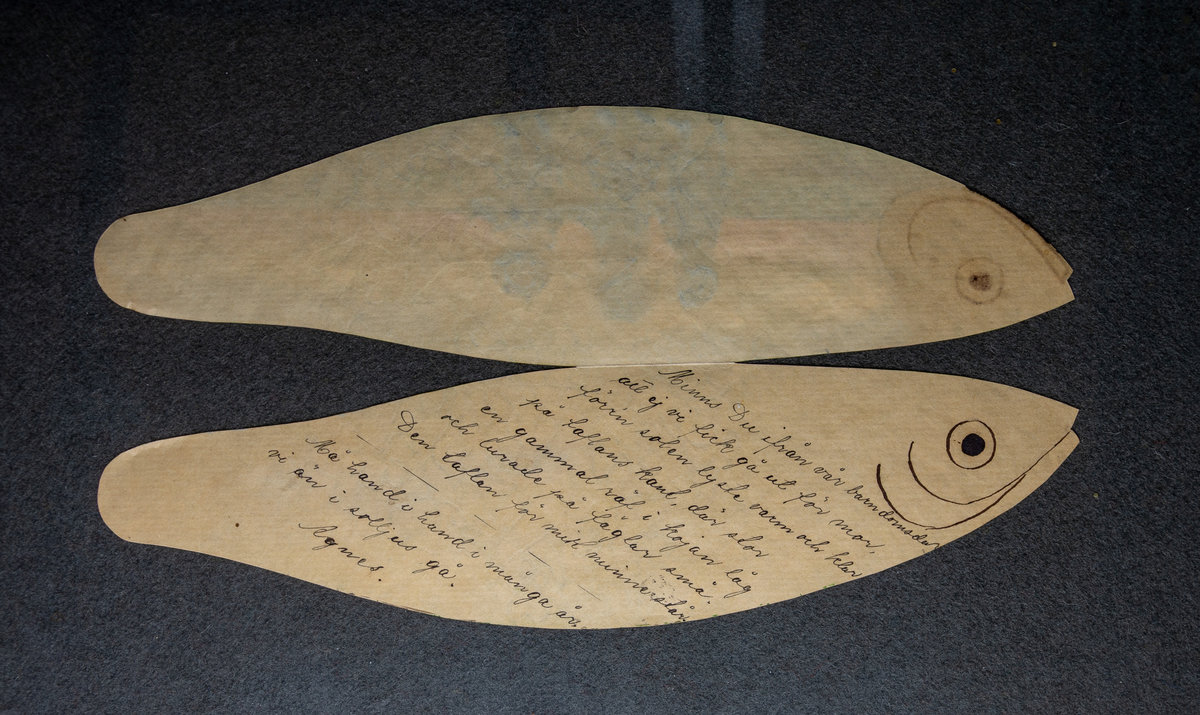 Minns Du ifrån vår barndomsdar
att ej vi fick gå ut för mor,
förrn solen lyste varm och klar
på taflans kant, där stor
en gammal räf i kojan låg
och lurade på fåglar små.
Den taflan för mitt minne står.
Må hand i hand i många år,
vi än i solljus gå.
Agnes.